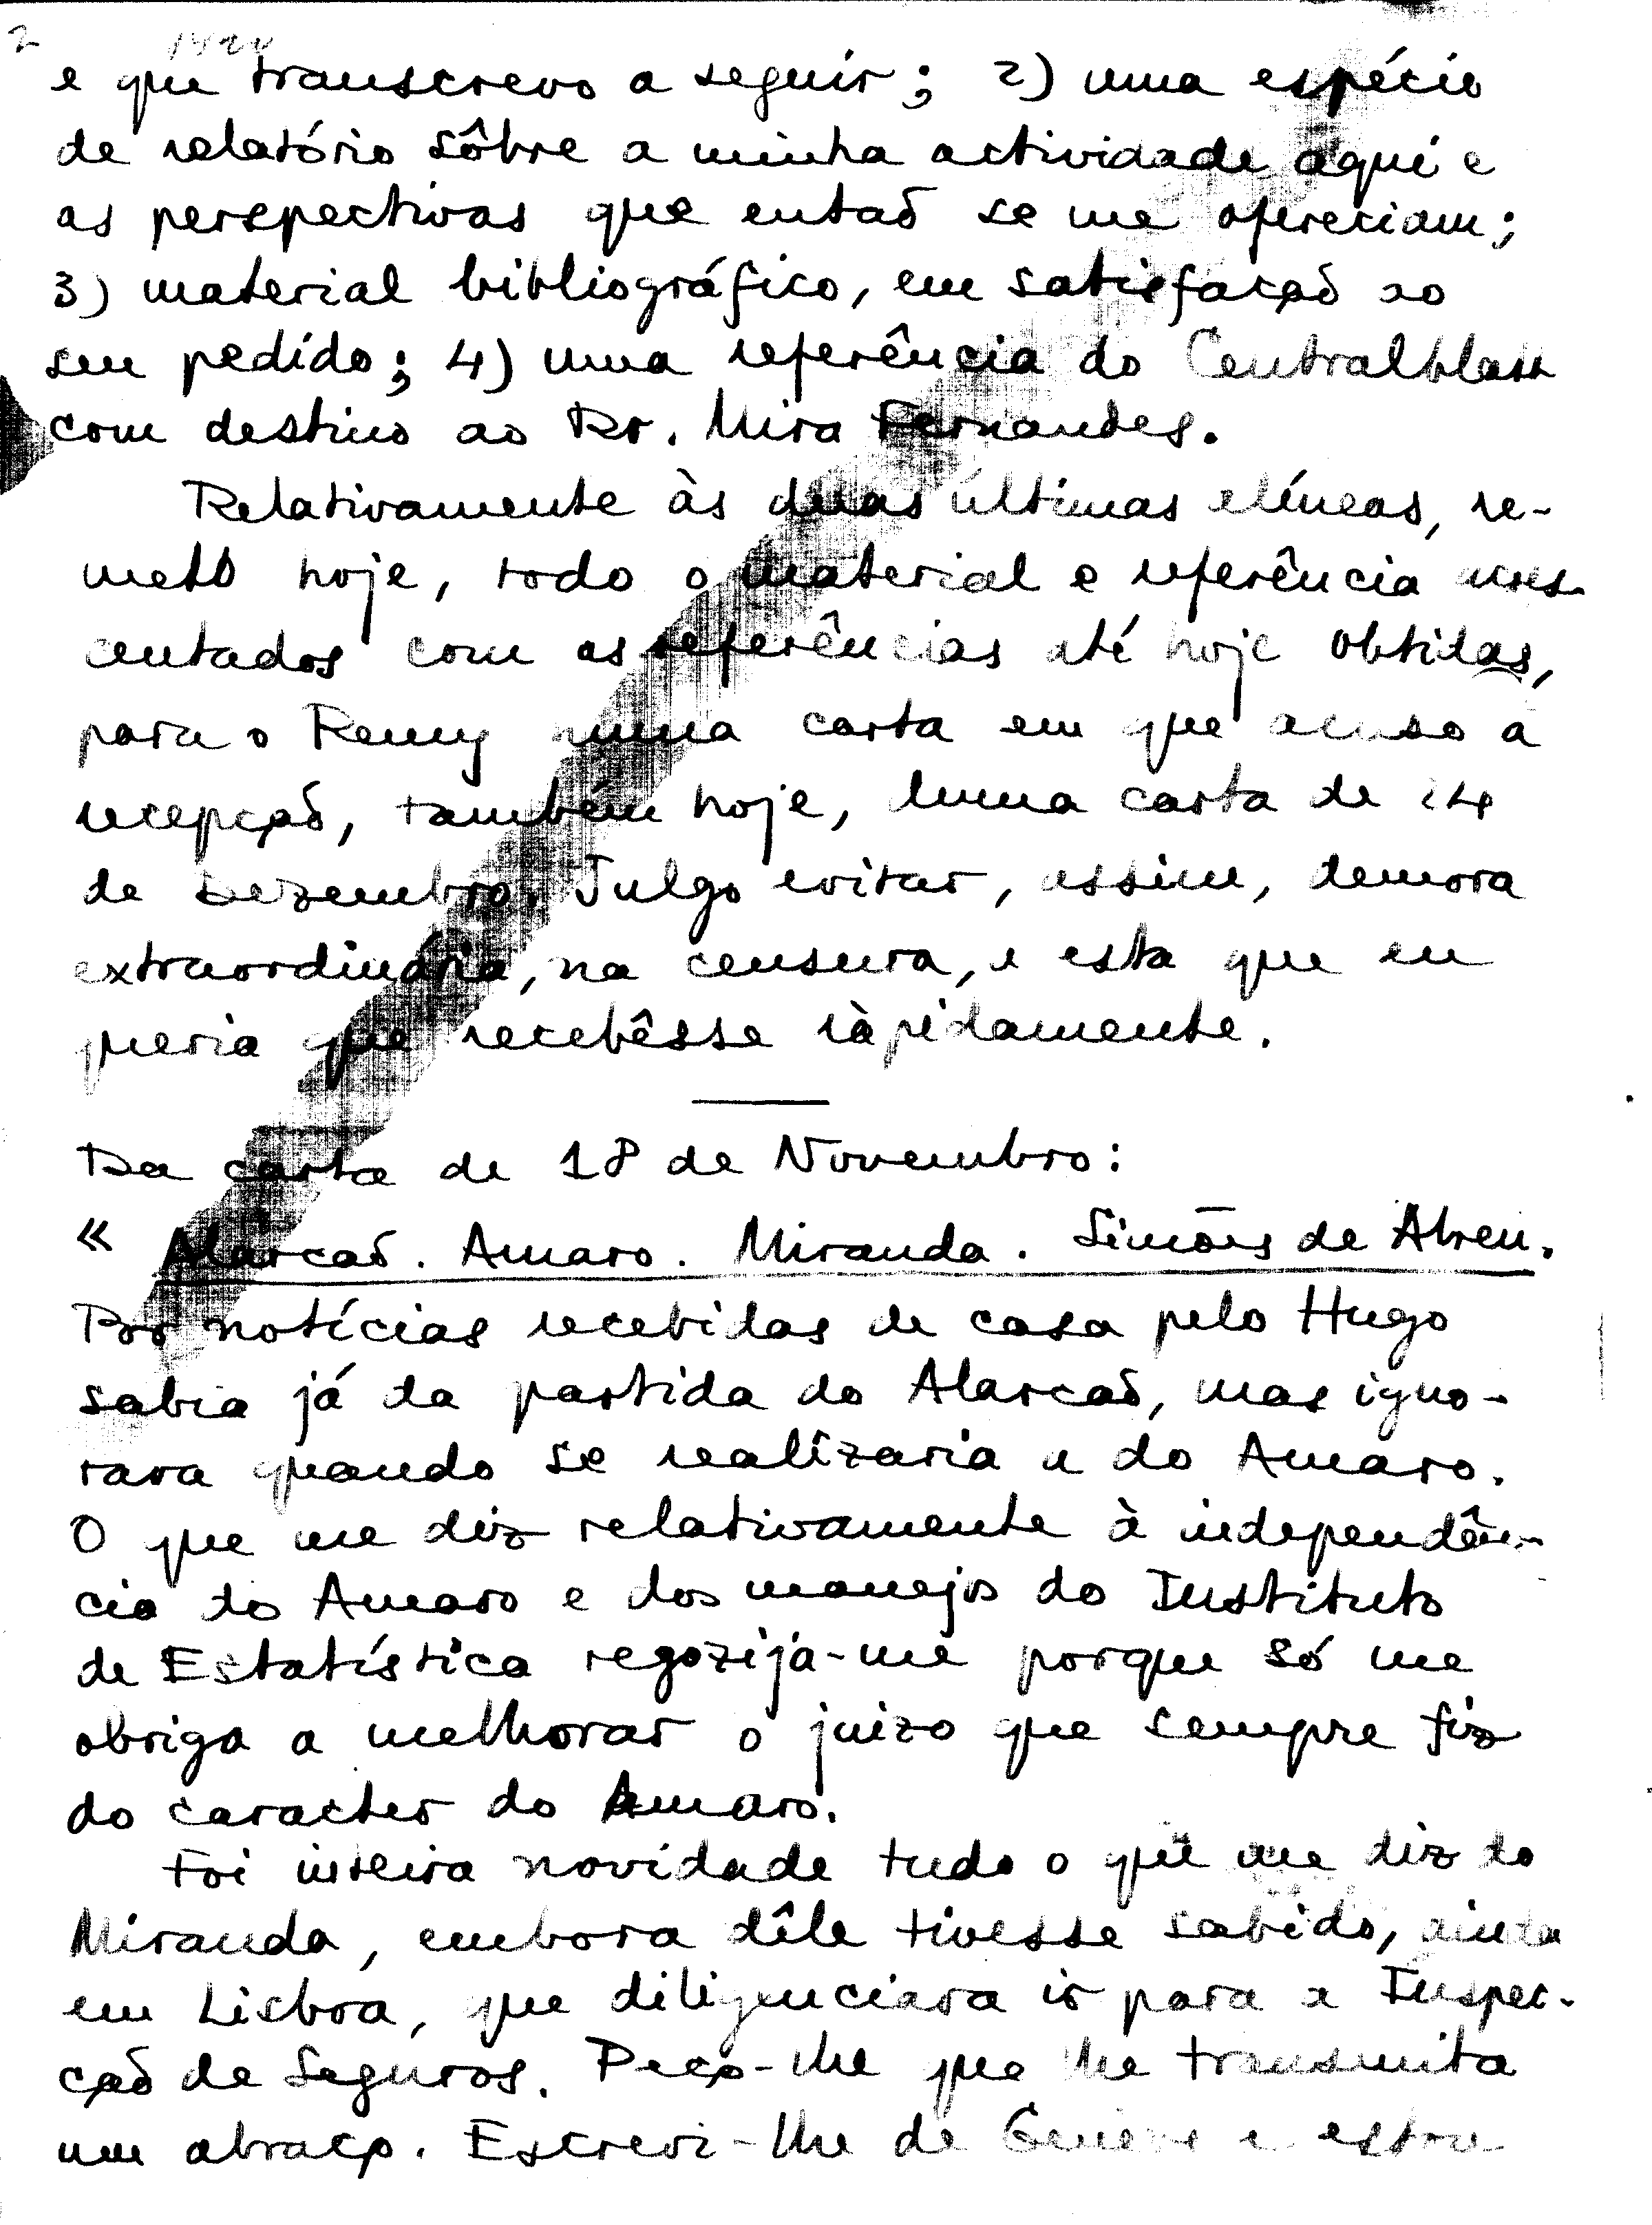 2
e que transcrevo a seguir; 2) uma espécie
de relatório sôbre a minha actividade aqui e
as perspectivas que entaõ se me ofereciam;
3) material bibliográfico, em satisfaçaõ ao
seu pedido; 4) uma referência do Centralblatt
com destino ao Dr. Mira Fernandes.
Relativamente às duas últimas alíneas, re-
meto hoje, todo o material e referência acres-
centados com as referências até hoje obtidas,
para o Remy numa carta em que acuso a
recepçaõ, também hoje, duma carta de 24
de Dezembro. Julgo evitar, assim, demora
extraordinária, na censura, a esta que eu
queria que recebêsse ràpidamente.
Da carta de 18 de Novembro:
« Alarcaõ. Amaro. Miranda. Simões de Abreu.
Por notícias recebidas de casa pelo Hugo
sabia já da partida do Alarcaõ, mas igno-
rava quando se realizaria a do Amaro.
O que me diz relativamente à independên-
cia do Amaro e dos manejos do Instituto
de Estatística regozija-me porque só me
obriga a melhorar o juizo que sempre fiz
do caracter do Amaro.
Foi inteira novidade tudo o que me diz do
Miranda, embora dêle tivesse sabido, ainda
em Lisboa, que diligenciara ir para a Inspec-
çaõ de Seguros. Peço-lhe que lhe transmita
um abraço. Escrevi-lhe de Genève e estou